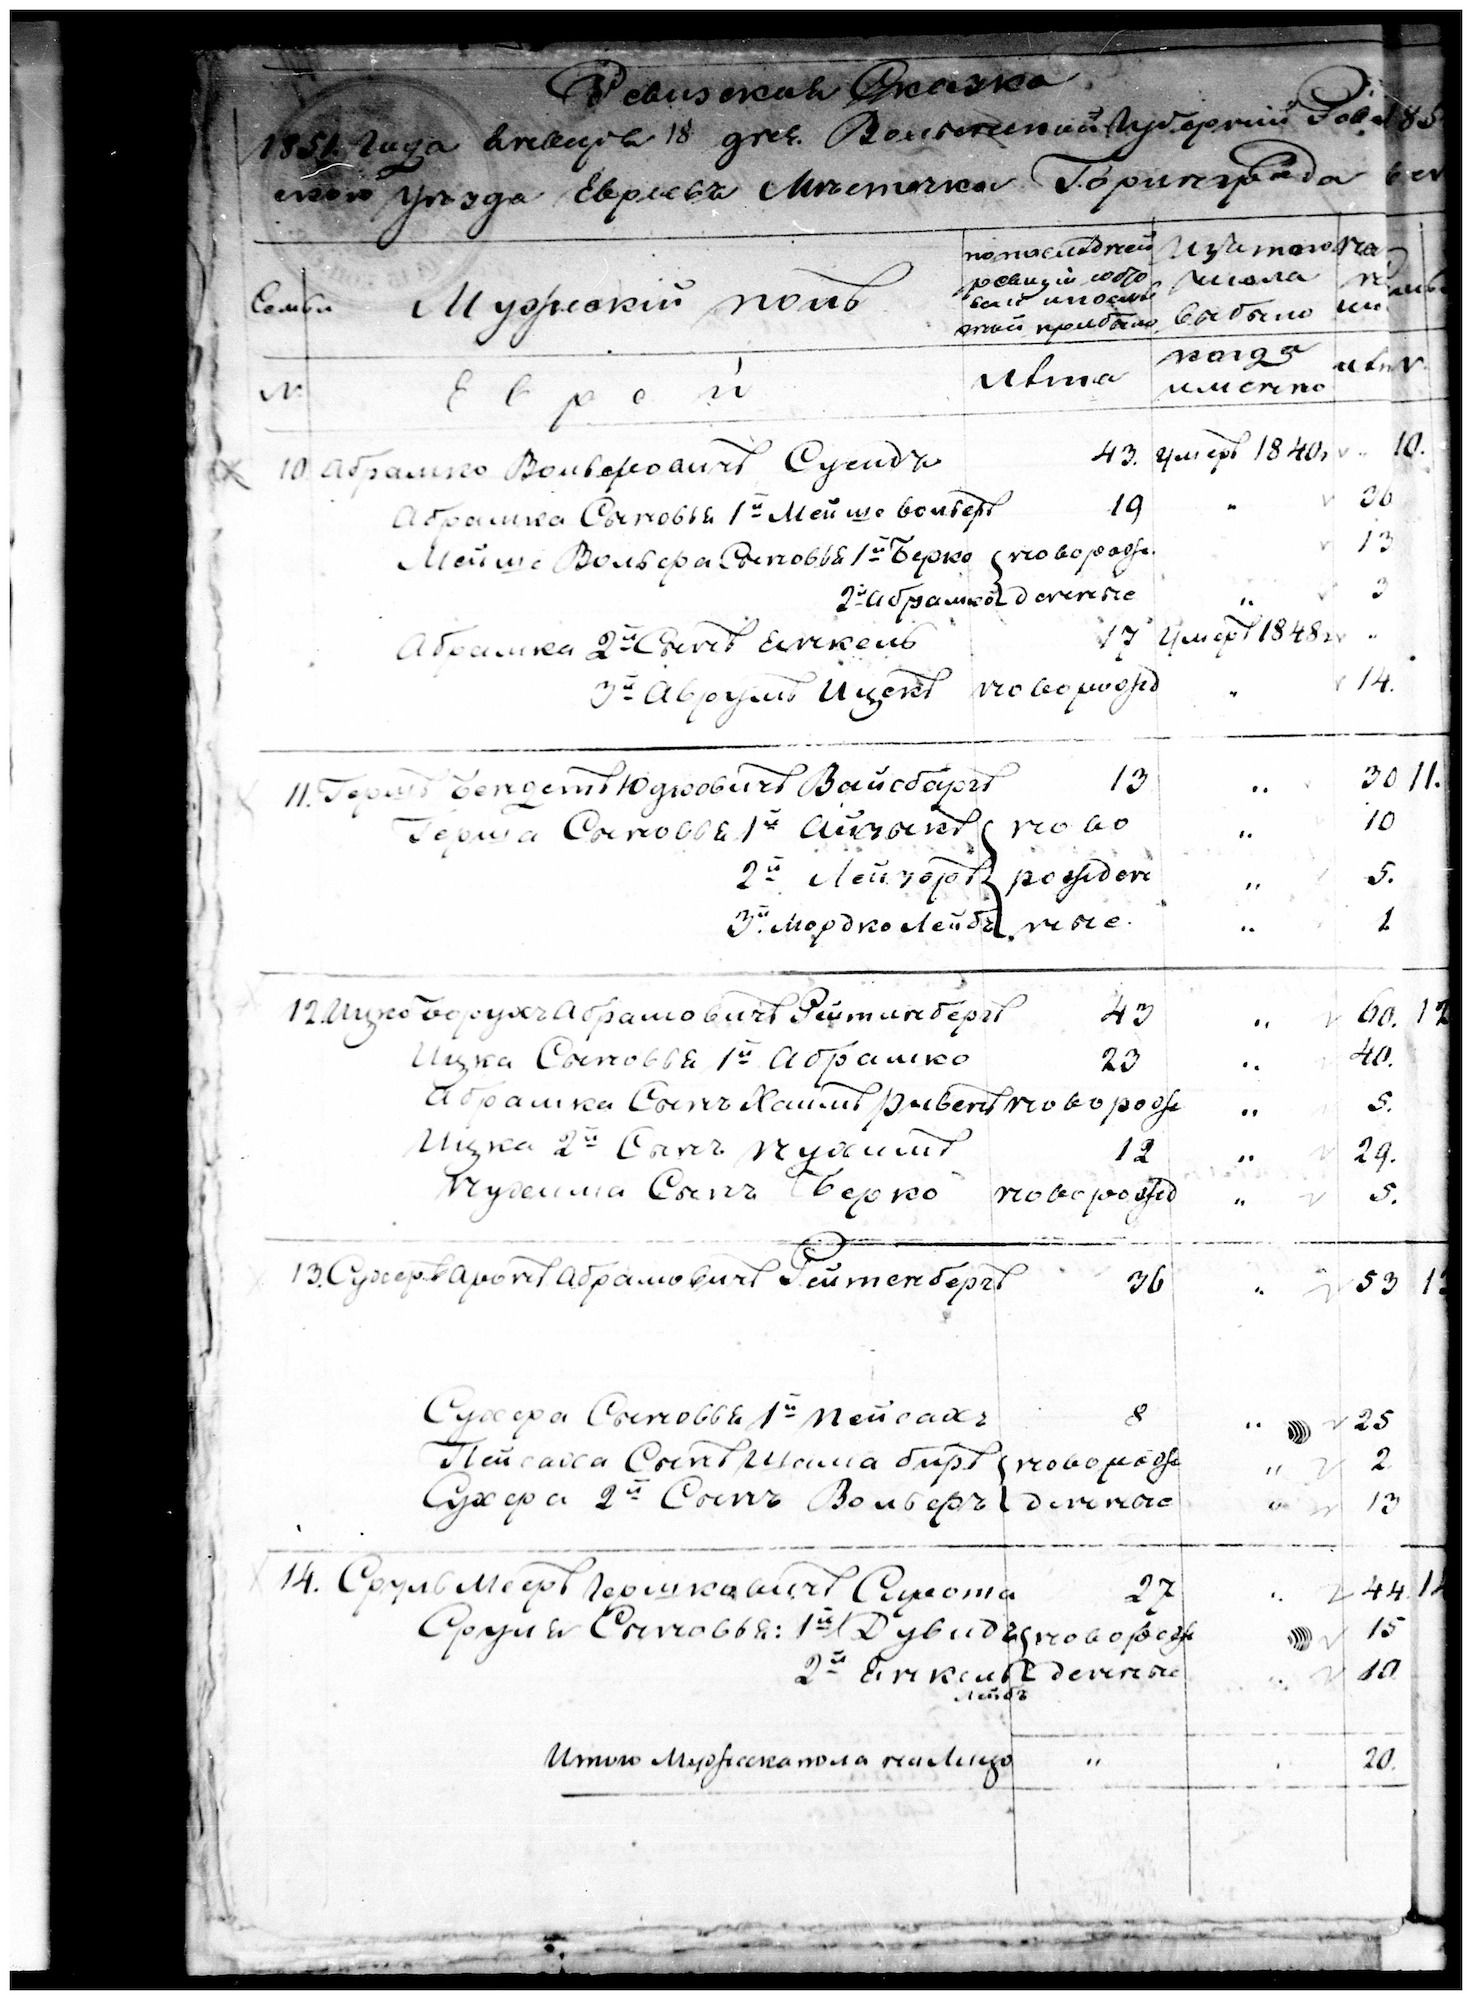 Ревизская Сказка
1851 Года Генваря 18 дня. Волынской Губернии Ровен
скаго Уезда Евреевъ Местечка Горинграда
Семьи
Мужескій полъ
по последней
ревизіи состо
яло и после
оной прибыло
Изъ того
числа
выбыло
на
№
Еврей
Лета
когда
именно
лета
10 Абрамко Вольфовичъ Суендъ 43. умеръ 1840г „ 10.
Абрамка Сыновья 1й Мейше Вольферъ 19 „ 36
Мейше Вольфера Сыновья 1й Берко новорож „ 13
2й Абрамко денные „ 3
Абрамка 2й Сынъ Енкель 17 умеръ 1848г „
3й Аврумъ Ицекъ новорожд „ 14.
11. Гершъ Бендетъ Юдковичъ Вайсбергъ 13 „ 30 11.
Герша Сыновья 1й Айзыкъ ново „ 10
2й Лейзоръ рожден „ 5.
3й Мордко Лейбъ ные. „ 1
12. Ицко Борухъ Абрамовичъ Рейтенбергъ 43 „ 60. 12
Ицка Сыновья 1й Абрамко 23 „ 40.
Абрамка Сынъ Хаимъ Рувенъ новорож „ 5.
Ицка 2й Сынъ Нухимъ 12 „ 29.
Нухима Сынъ Берко новорожд „ 5.
13. Сухеръ Аронъ Абрамовичъ Рейтенбергъ 36 „ 53 13
Сухера Сыновья 1й Пейсахъ 8 „ 25
Пейсаха Сынъ новорож „ 2
Сухера 2й Сынъ Вольферъ денные „ 13
14. Сруль Мееръ Гершковичъ Сирота 27 „ 44. 14
Сруля Сыновья: 1й Дувидъ новорож „ 15
2й Енкель денные „ 10.
Лейбъ
Итого Мужеска пола на Лицо „ „ 20.